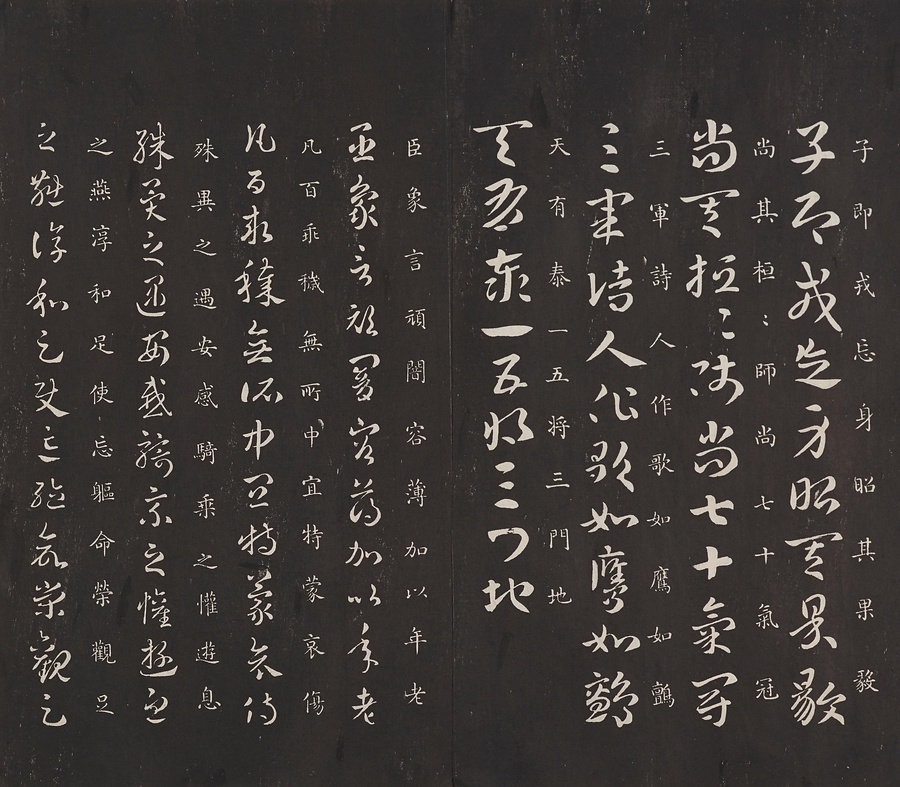 子即戎忘身昭其果毅
子即戎忘身昭其果毅
尚其桓〻師尚七十氣冠
尚其桓〻師尚七十氣冠
三軍詩人作歌如鷹如鸇
三軍詩人作歌如鷹如鸇
天有泰一五将三門地
天有泰一五将三門地
臣象言頑闇容薄加以年老
臣象言頑闇容薄加以年老
凡百乖穢無所中宜特蒙哀傷
凡百乖穢無所中宜特蒙哀傷
殊異之遇安感騎乘之懽遊息
殊異之遇安感騎乘之懽遊息
之燕淳和足使忘軀命榮觀足
之燕淳和足使忘軀命榮觀足